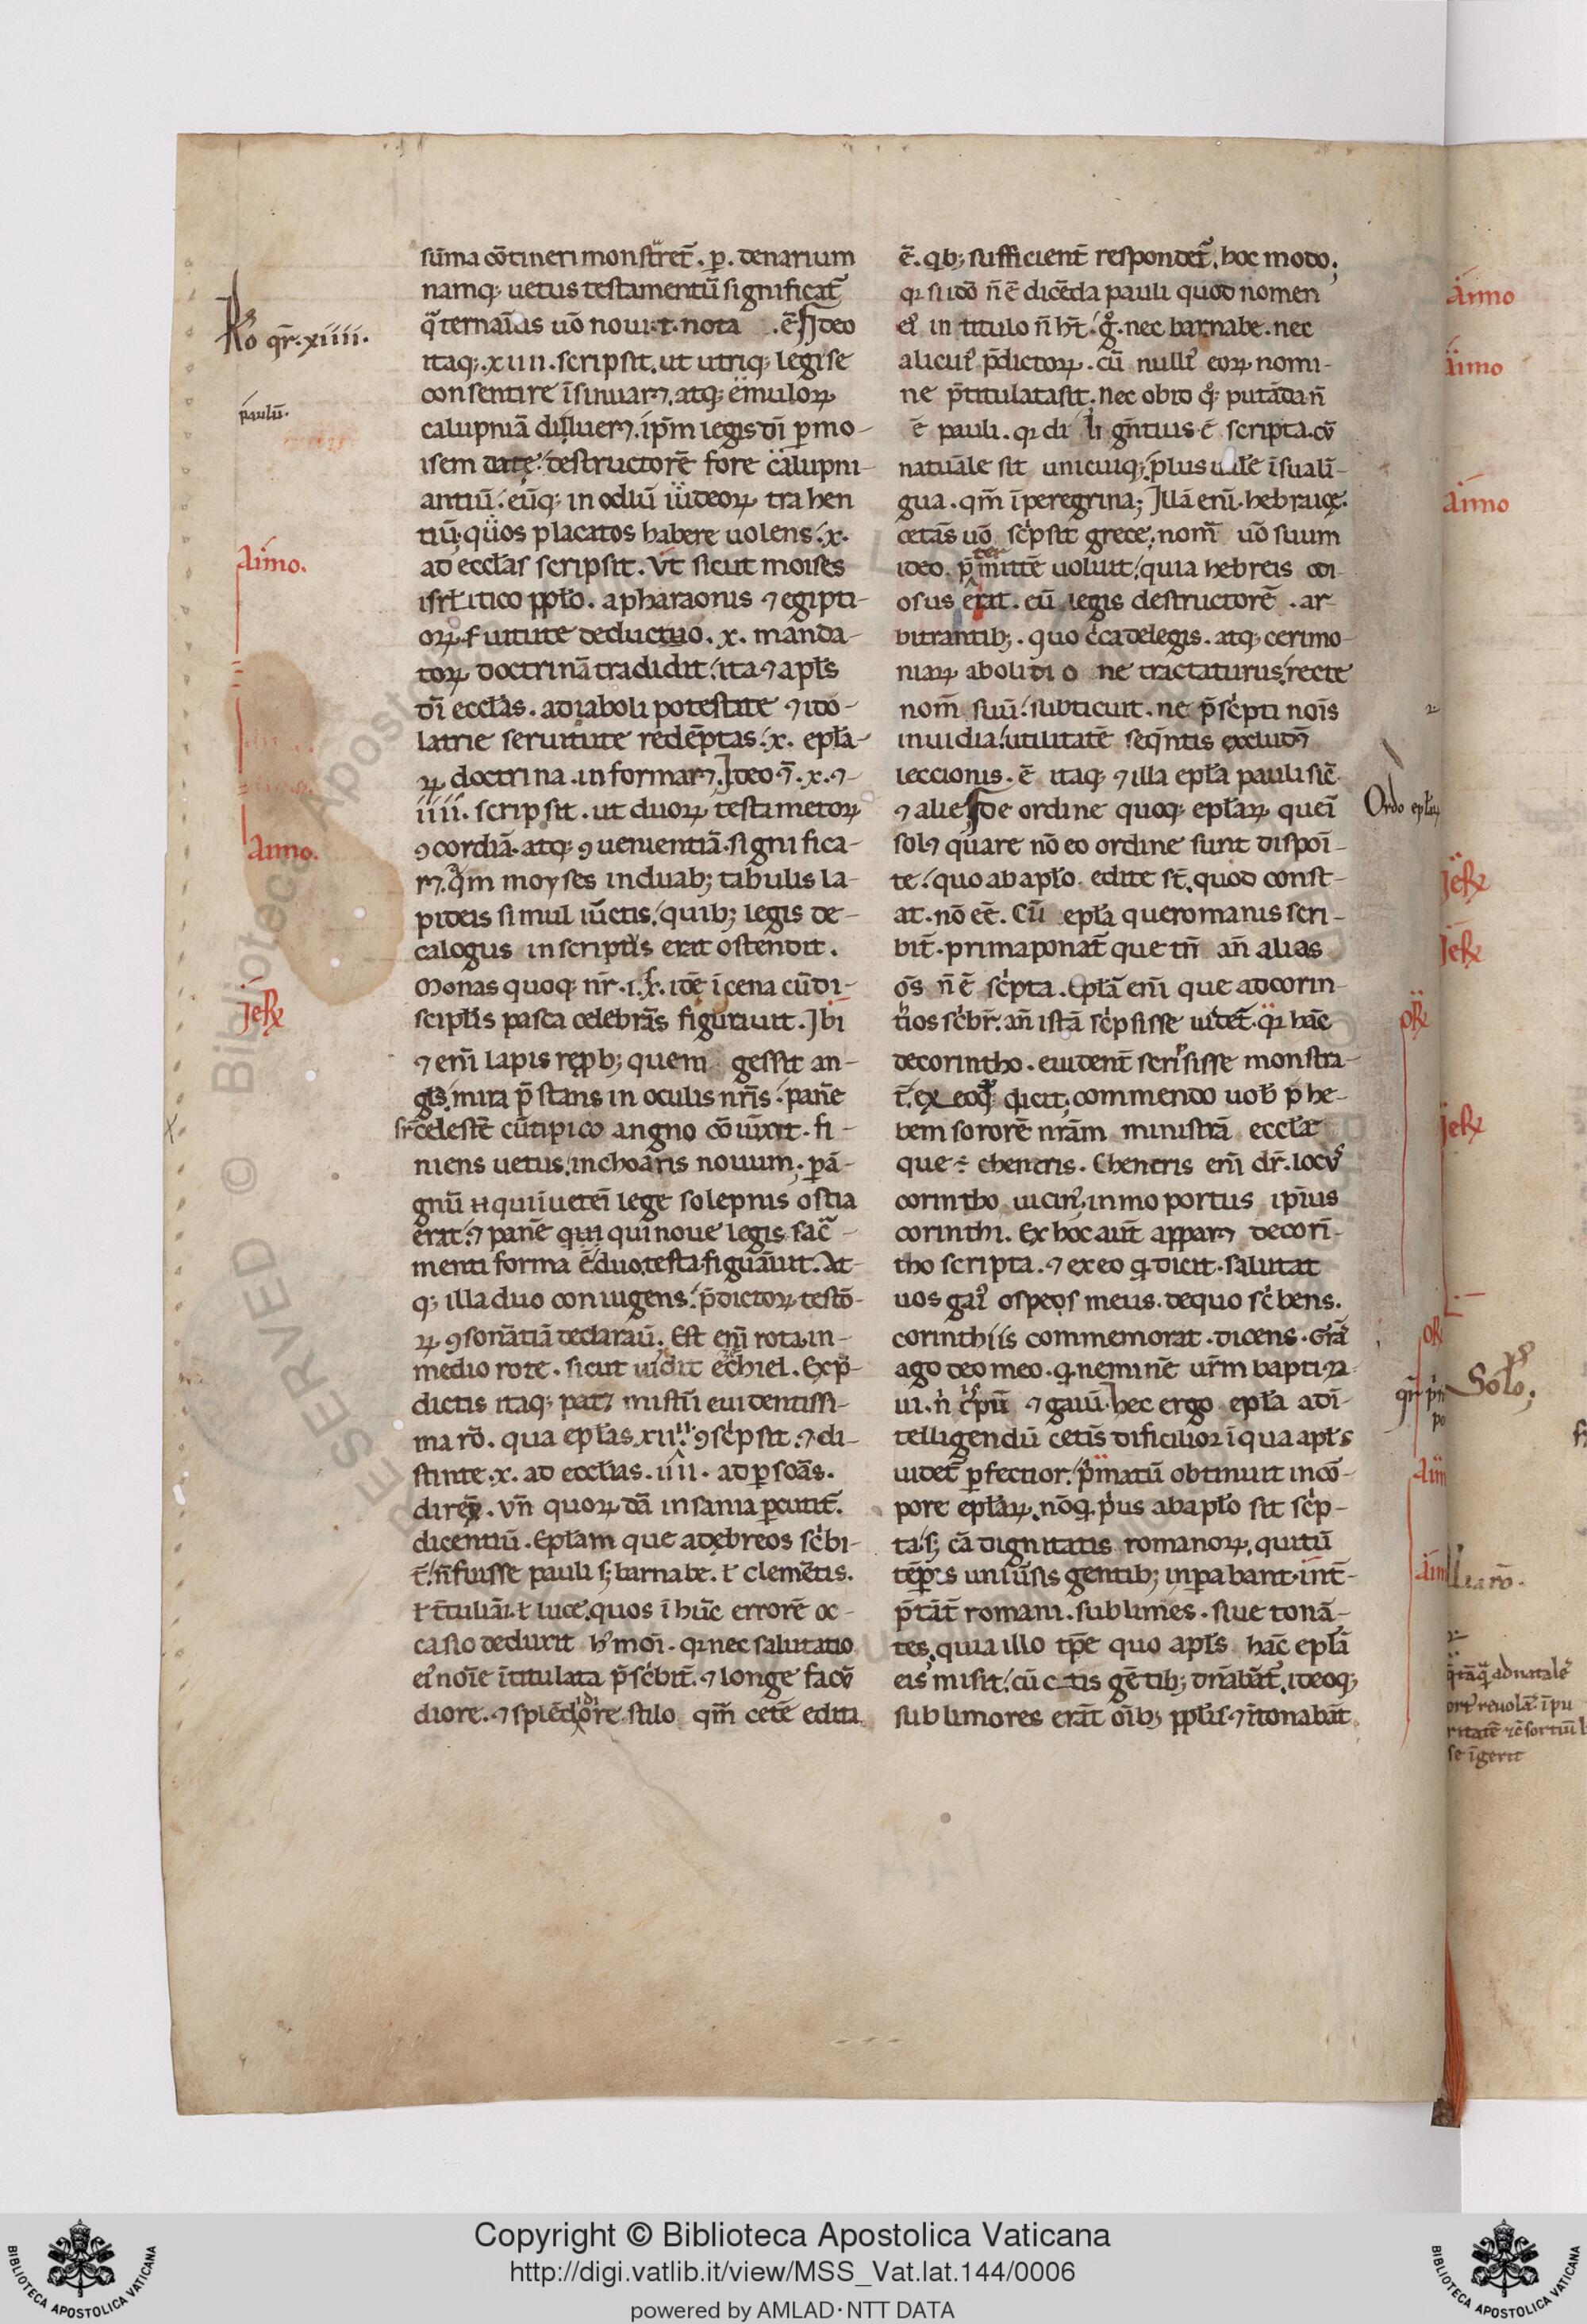 Rō qr̄. xiiii.
paulū.
Aimo.
Aimo.
JeRꝰ
sūma cōtineri monstret̄. p̲. denarium
namq; uetus testamentū significat̄
q̄ternari᷒as uō noui. t. nota . ē Jdeo
itaq;. xiiii. scripsit. ut utriq; legi se
consentire īsinuar&. atq; emuloꝝ
calupniā diluer&. ip̄m legis dī p̲ mo-
isem date: destructorē fore calupni-
antiū. eūq; in odiū iudeoꝝ tra hen
tiū. quos placatos habere uolens. x.
ad eccl̄as scripsit. Vt sicut moises
isrl̄itico ppl̄o. a pharaonis ⁊ egipti-
oꝝ. s̄uitute deducto. x. manda-
toꝝ doctrinā tradidit: ita ⁊ apl̄s
dī eccl̄as. a diaboli potestate ⁊ ido-
latrie seruitute redēptas. x. epl̄a-
ꝝ doctrina. informar&. Jdeo q̄. x. ⁊
iiii. scripsit. ut duoꝝ testametoꝝ
ꝯcordiā. atq; ꝯuenientiā. significa-
r&. Qm̄ moyses in duab; tabulis la-
pideis simul iūctis: quib; legis de-
calogus inscriptus erat ostendit.
Monas quoq; nr̄. i. x̄. idē ī cena cū di-
scipl̄is pasca celebrās figurauit. Jbi
⁊ enī lapis rep̲b; quem gessit an-
gl̄s. mira p̄stans in oculis nr̄is. panē
celestē cū tipico angno cōiūxit. fi-
niens uetus. inchoans nouum. p̲ a-
gnū qui ī ueteī lege solepnis ostia
erat. ⁊ panē qui noue legis sac̄-
menti forma ē. duo testa. figurāuit. At-
q; illa duo coniugens. p̄dictoꝝ testō-
ꝝ ꝯsonātiā declarauī. Est enī rota in-
medio rote. sicut uidit ec̄hiel. Ex p̄-
dictis itaq; pat& mistū euidentissi-
ma rō. qua epl̄as xiiii. ꝯsc̄psit. ⁊ di-
stinte. x. ad eccl̄ias. iiii. ad p̲soās.
direx̄. Vn̄ quoꝝdā insania p̲cutit̄.
dicentiū. Epl̄am que ad ebreos sc̄bi-
t̄. n̄ fuisse pauli s; barnabe. ł clemētis.
ł t̄tuliāi. ł luce. quos ī hūc errorē oc-
casio deduxit h᷒ moī. qꝛ nec salutatio
ei᷒ noīe ītitulata p̄sc̄bit̄. ⁊ longe facū
diore. ⁊ splēdidiore stilo qm̄ cetē edita
ē. qb; sufficient̄ respondet̄. hoc modo.
qꝛ si idō n̄ ē dicēda pauli quod nomen
ei᷒ in titulo n̄ ht̄. g̊. nec barnabe. nec
alicui᷒ p̄dictoꝝ. cū nulli᷒ eoꝝ nomi-
ne p̄titulata sit. nec ob id q̊; putāda n̄
ē pauli. qꝛ di li gn̄tius ē scripta. cū
natuāle sit unicuiq; plus uale ī sua lī-
gua. qm̄ ī peregrina; Jllā enī hebraice.
cetās uō sc̄psit grece; nom̄ uō suum
ideo. p̄termittē uoluit. quia hebreis odi-
osus erat. eū legis destructorē. ar-
bitrantib;. quo c̄ca de legis. atq; cerimo-
niaꝝ abolitio ne tractaturus. recte
nom̄ suū. subticuit. ne p̄sc̄pti noīs
inuidia. utilitatē seq̄ntis excludet̄
leccionis. ē itaq; ⁊ illa epl̄a pauli sic̄
⁊ alie De ordine quoq; epl̄aꝝ queī
sol& quare nō eo ordine sunt dispoī-
te: quo ab apl̄o edite st̄. quod const-
at. nō eē. Cū epl̄a que romanis scri-
bit̄. prima ponat̄ que tn̄ an̄ alias
oēs n̄ ē sc̄pta. Epl̄ā enī que ad corin-
tios sc̄br̄. an̄ istā sc̄psisse uidet̄. qꝛ hāc
de corintho. euident̄ scrisisse monstra-
t̄. ex eo q̊ dicit; commendo uob̄ phe-
bem sororē nrām ministrā eccl̄ie
que ÷ chencris. Chencris enī dr̄. locus
corintho uicin᷒. inmo portus ip̄ius
corinthi. Ex hoc aut̄ appar& de corī-
tho scripta. ⁊ ex eo q̊ dicit. salutat
uos gai᷒ ospeos meus. de quo sc̄bens.
corinthiis commemorat. dicens. Grā
ago deo meo. q̊ neminē ur̄m baptiza-
ui. n̄ c̄spū ⁊ gaiū Hec ergo epl̄a ad ī-
telligendū cetīs dificilior ī qua apl̄s
uidet̄ p̲fectior. p̄matū obtinuit in cō-
pore epl̄aꝝ. nō q̊ p̄us ab apl̄o sit sc̄p-
ta. s; cā dignitatis romanoꝝ. qui tū
tēp̲is uniūsis gentib; inp̲abant. int̄-
p̄tāt̄ romani. sublimes. siue tonā-
tes. quia illo tp̄e quo apl̄s hāc epl̄ā
eis misit. cūctis gētib; dn̄abāt̄. ideoq;
sublimores erāt oīb; ppl̄is ⁊ ītonabāt
Ordo epl̄aꝝ
Aimo
Aimo
Aimo
JeRꝰ
JeRꝰ
JeRꝰ
Solō.
se īgerit
Copyright © Biblioteca Apostolica Vaticana
http://digi.vatlib.it/view/MSS_Vat.lat.144/0006
powered by AMLAD·NTT DATA
BIBLIOTECA APOSTOLICA VATICANA
BIBLIOTECA APOSTOLICA VATICANA